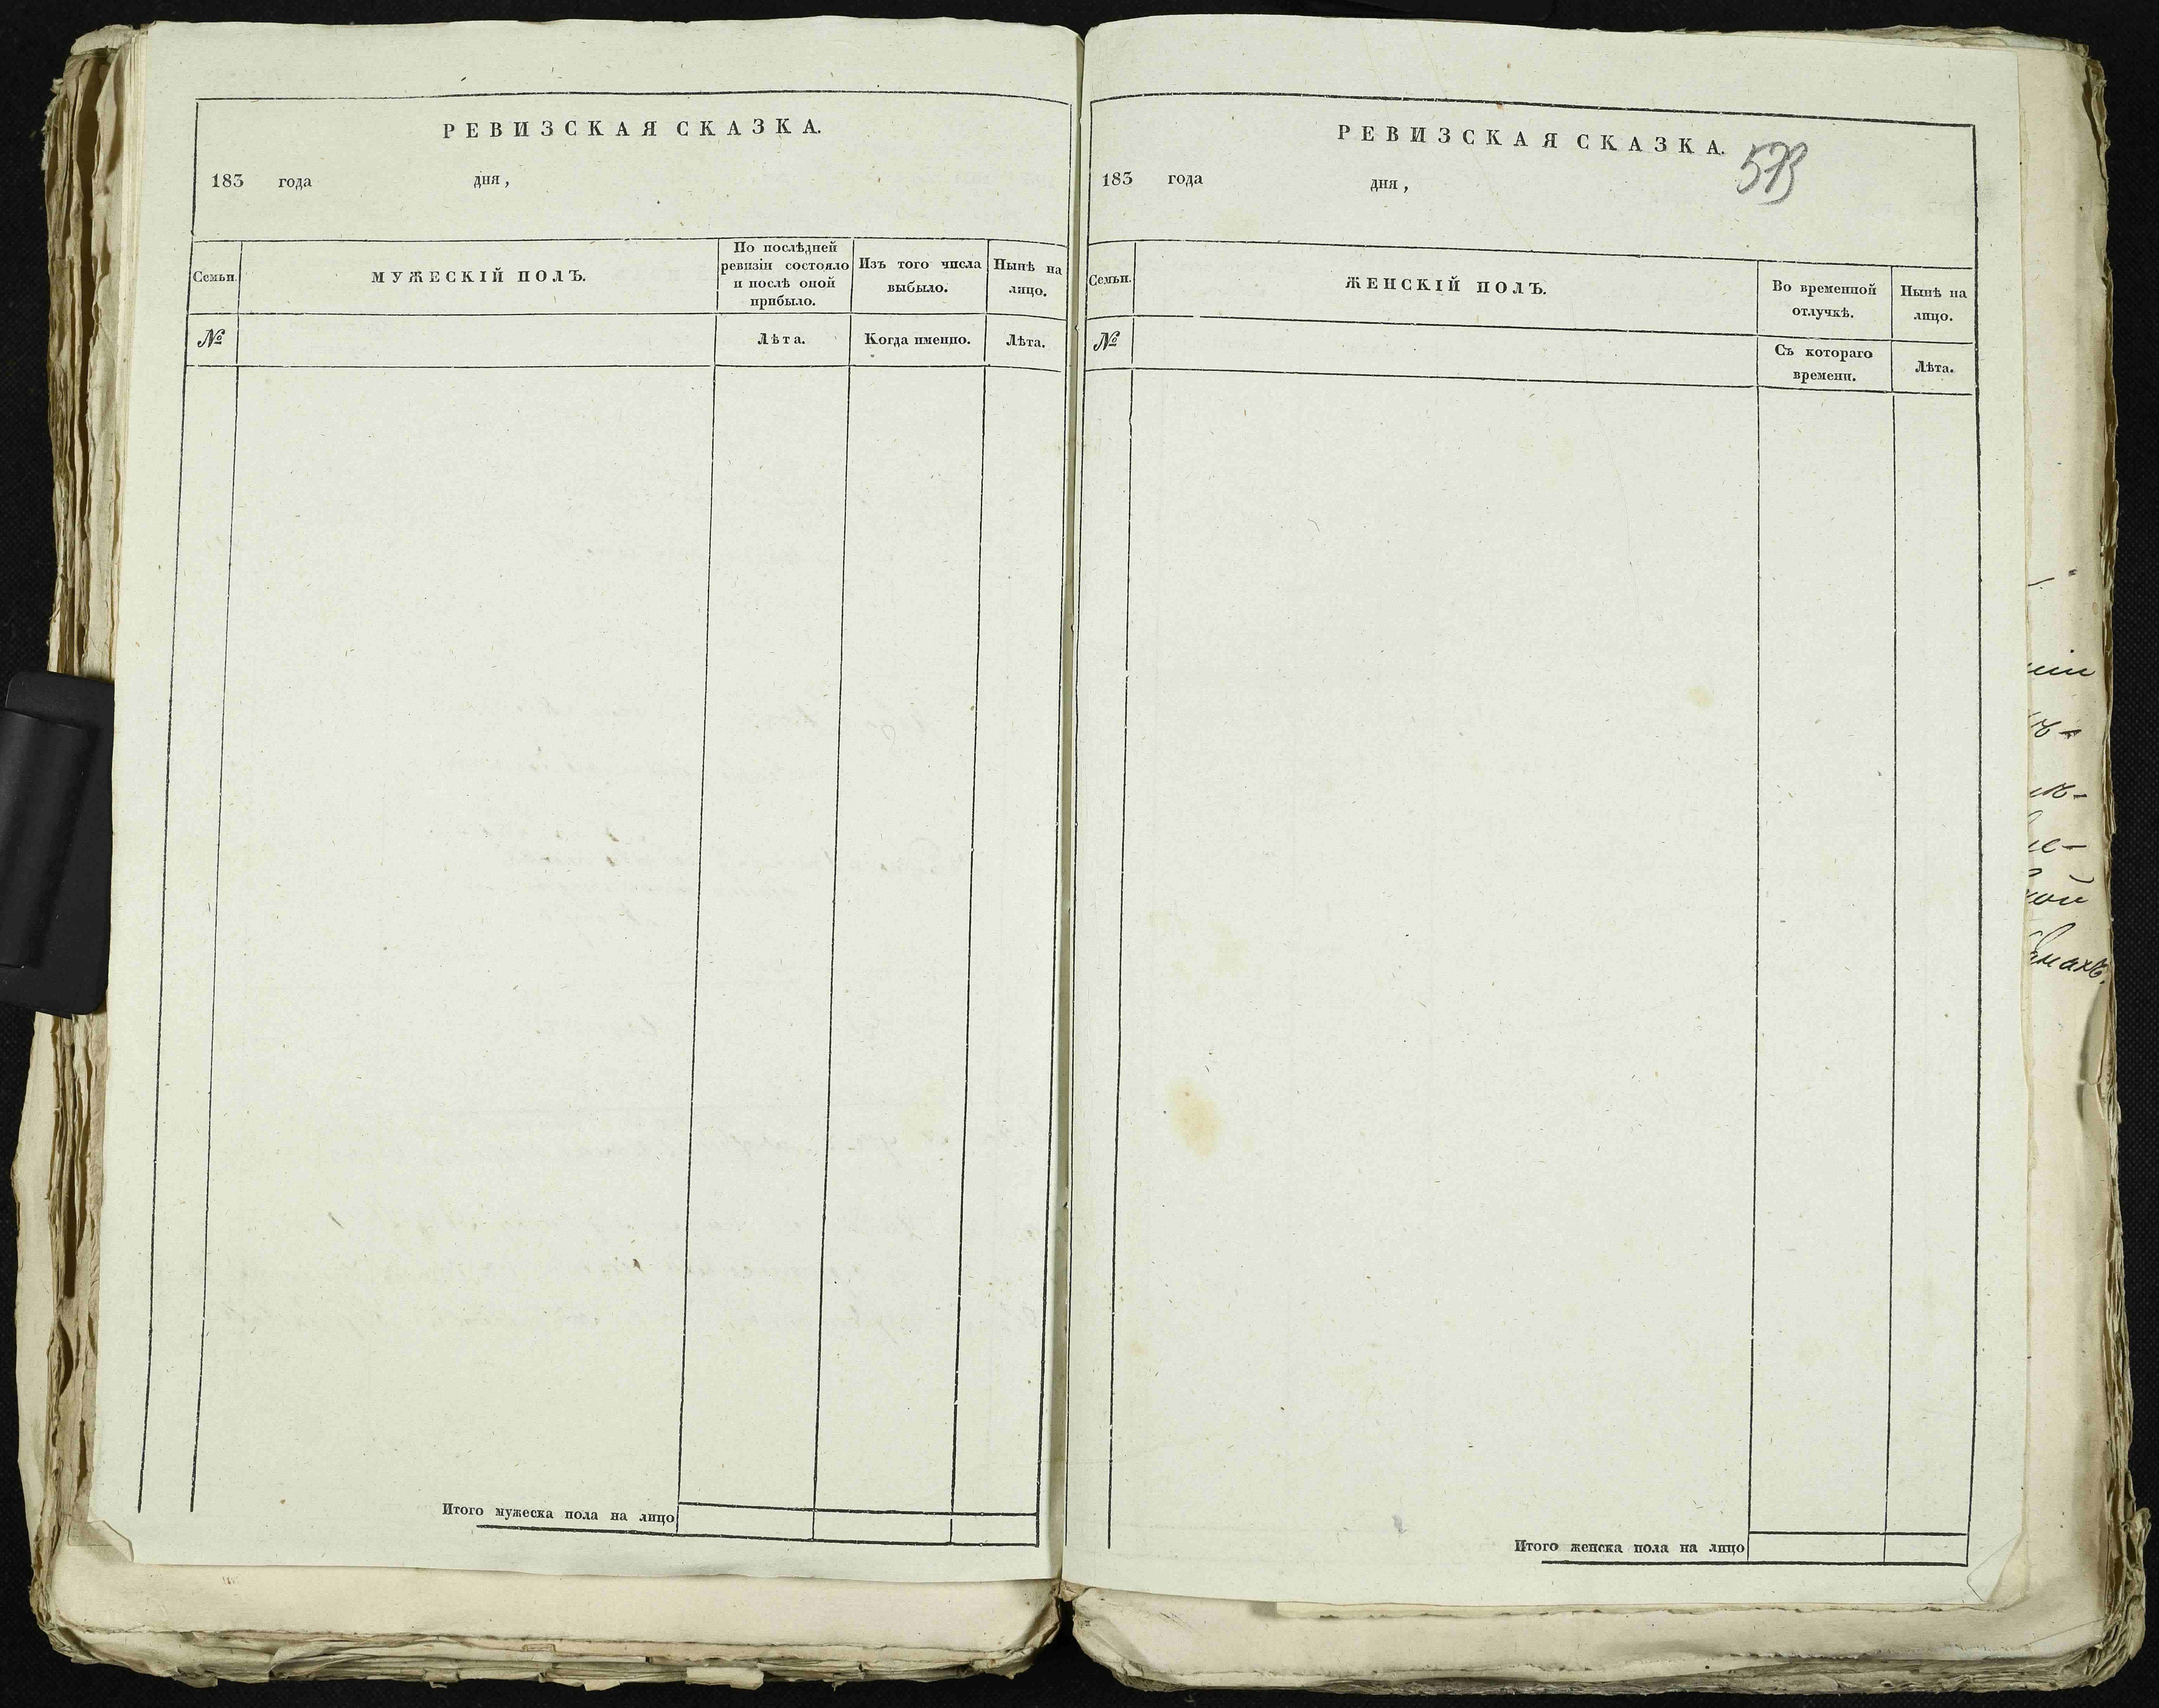 РЕВИЗСКАЯ СКАЗКА.
183 года дня,
Семьи.
МУЖЕСКІЙ ПОЛЪ.
По послѣдней
ревизіи состояло
и послѣ оной
прибыло.
Изъ того числа
выбыло.
Нынѣ на
лицо.
№
Лѣта.
Когда именно.
Лѣта.
Итого мужеска пола на лицо
РЕВИЗСКАЯ СКАЗКА.
573
183 года дня,
Семьи.
ЖЕНСКІЙ ПОЛЪ.
Во временной
отлучкѣ.
Нынѣ на
лицо.
№
Съ котораго
времени.
Лѣта.
Итого женска пола на лицо